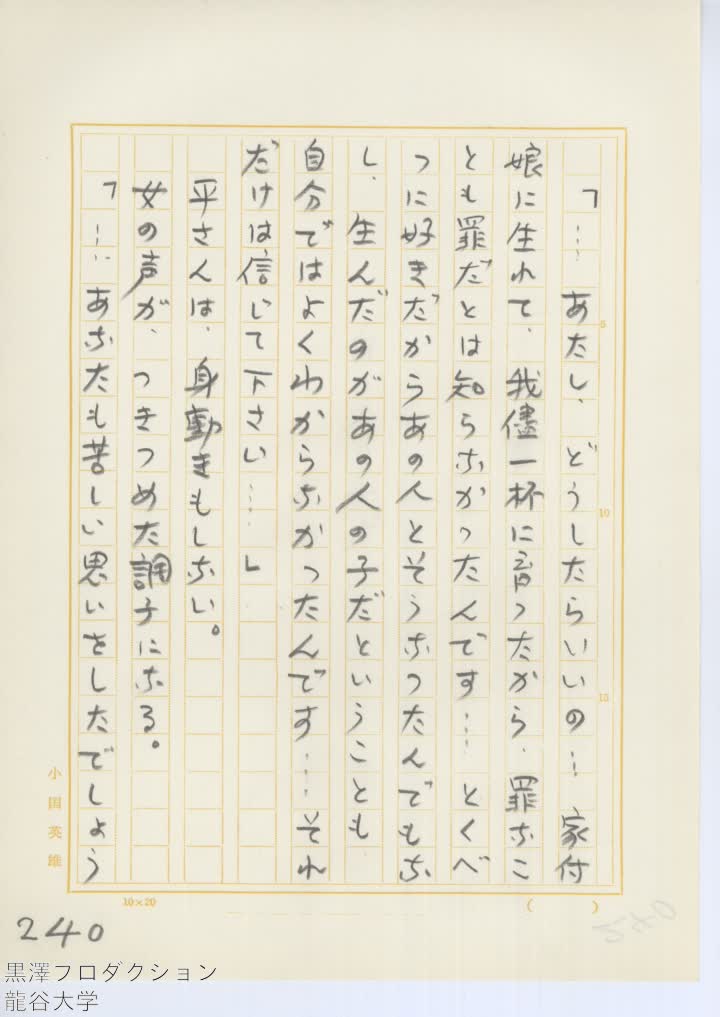 「…あたし、どうしたらいいの…家付
娘に生れて、我儘一杯に育ったから、罪なこ
とも罪だとは知らなかったんです……とくべ
つに好きだからあの人とそうなったんでもな
し、生んだのがあの人の子だということも
自分ではよくわからなかったんです……それ
だけは信じて下さい……」
平さんは、身動きもしない。
女の声が、つきつめた調子になる。
「……あなたも苦しい思いをしたでしょう
5
10
15
小国英雄
10×20
( )
240
240
黒澤プロダクション
龍谷大学